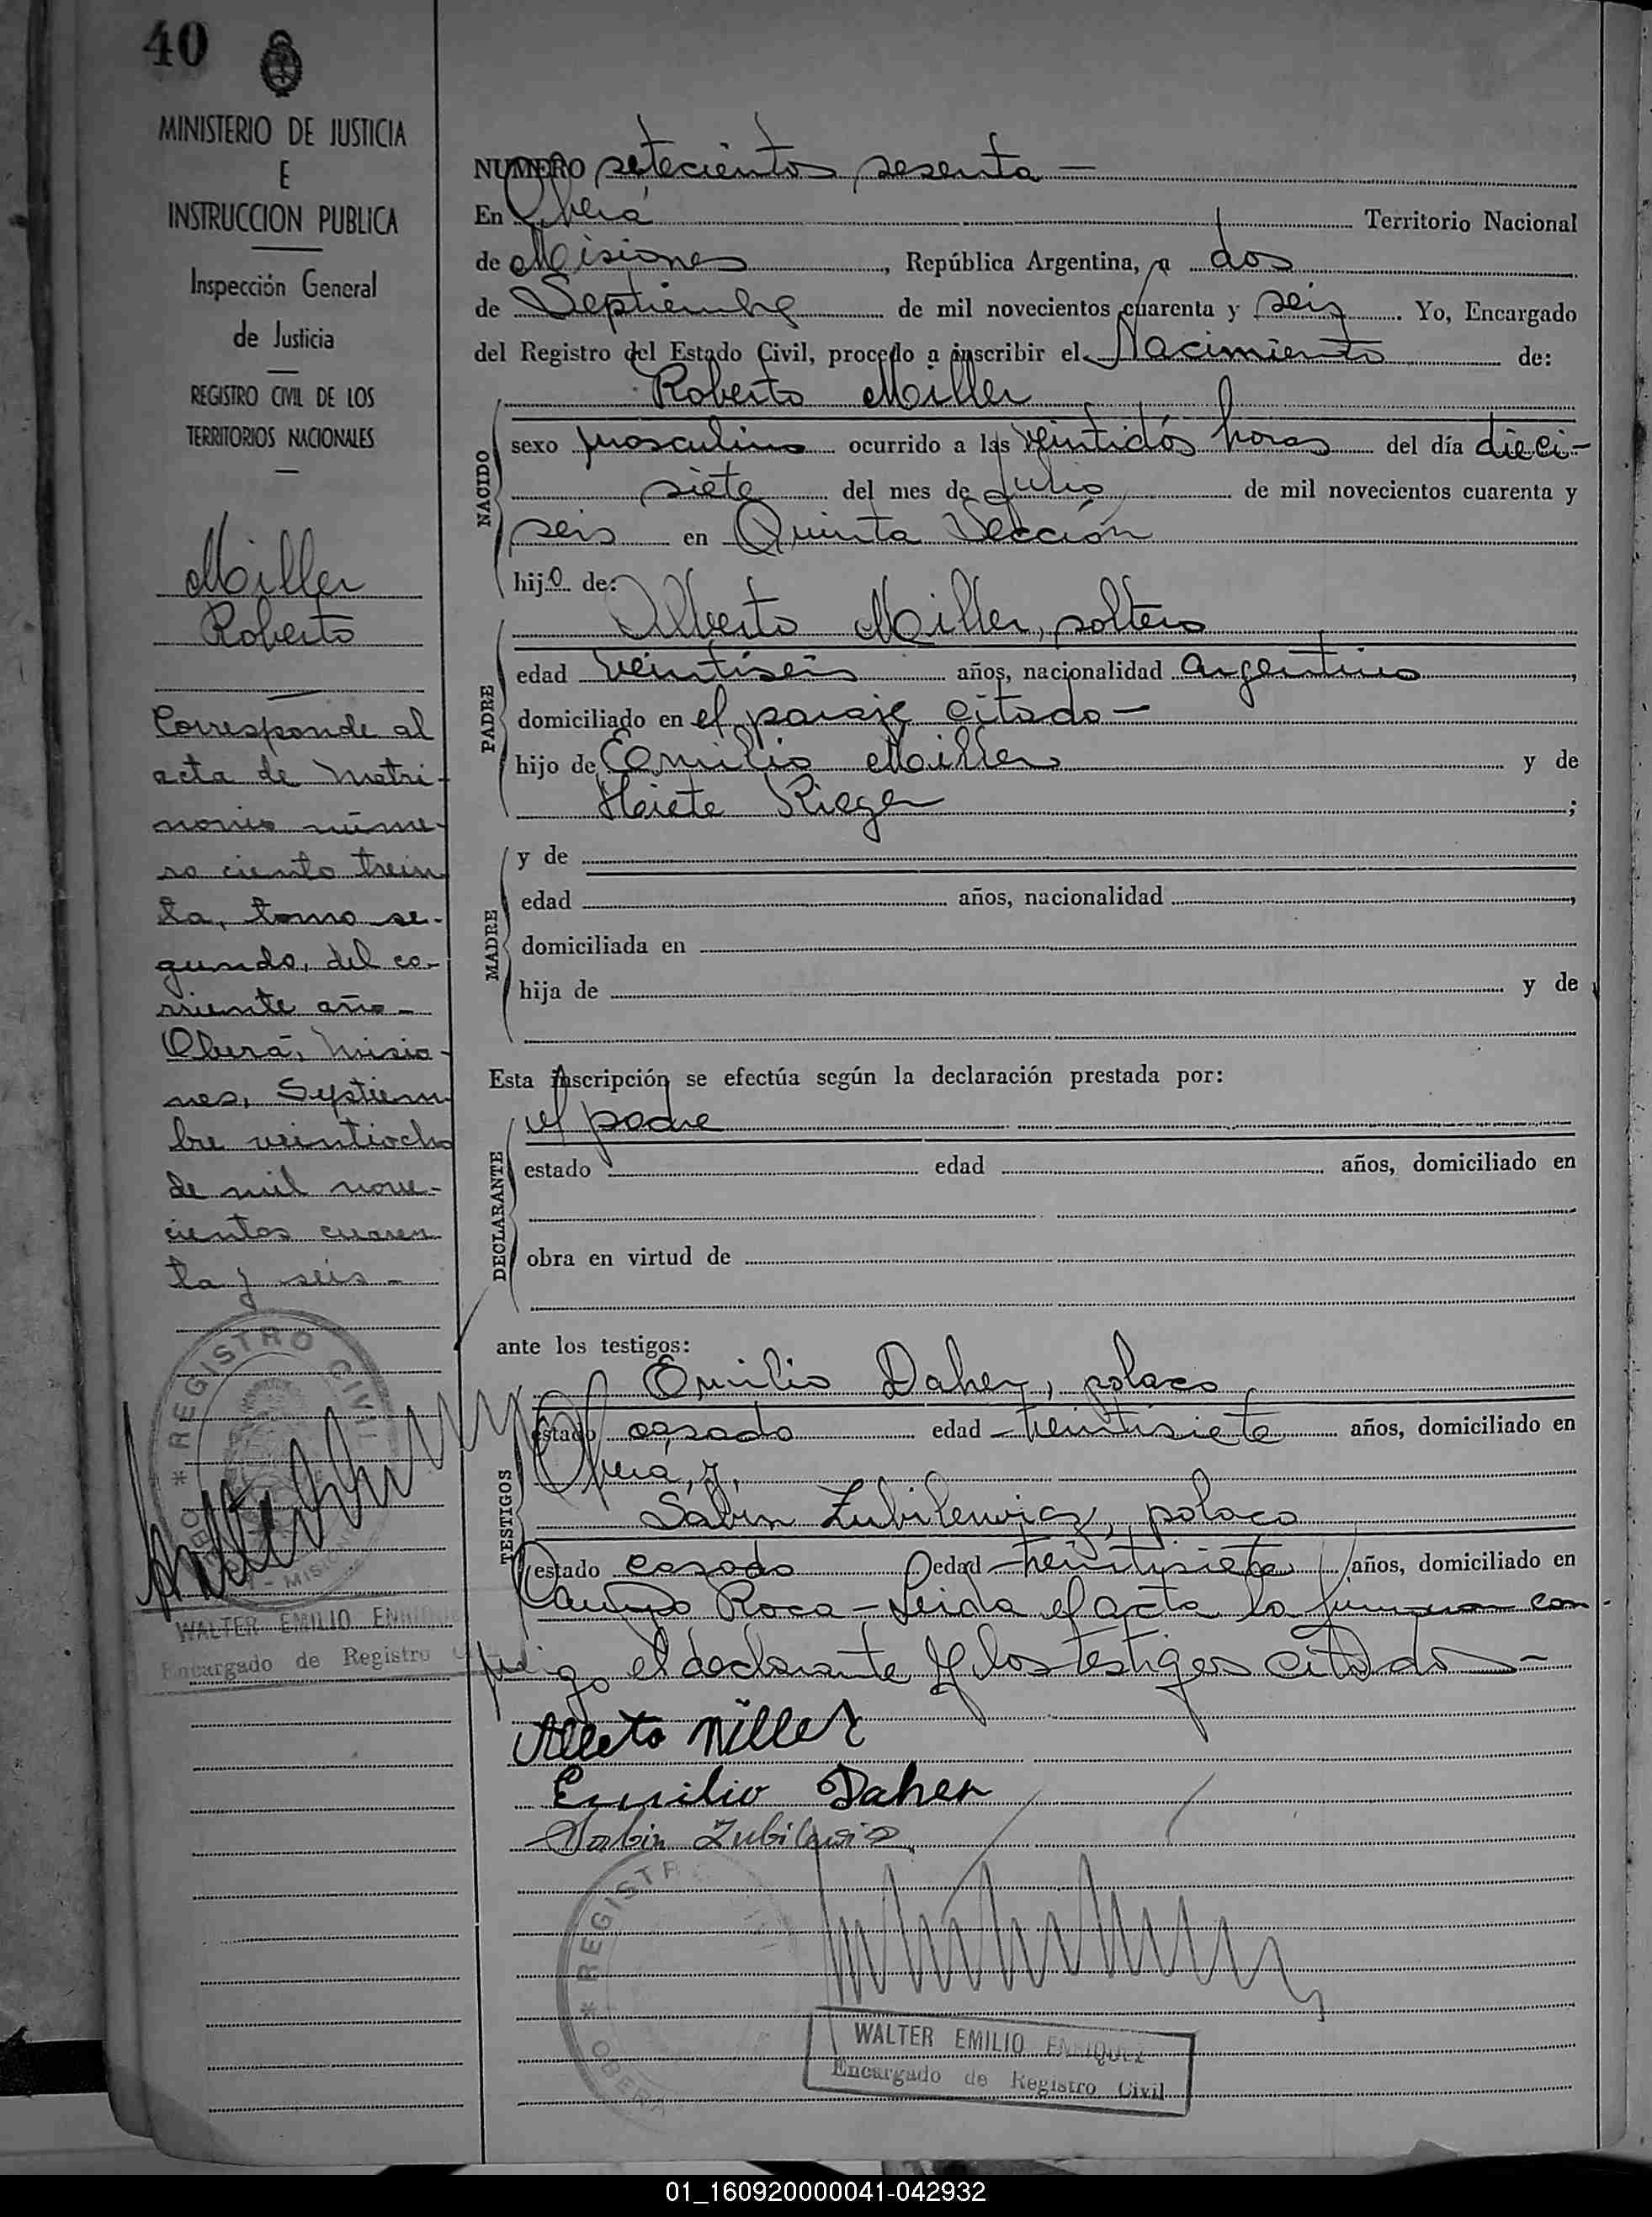 40
MINISTERIO DE JUSTICIA
E
INSTRUCCION PUBLICA
Inspección General
de Justicia
REGISTRO CIVIL DE LOS
TERRITORIOS NACIONALES
Miller
Roberto
Corresponde al
acta de matri-
monio núme-
ro ciento trein
ta, tomo se-
gundo, del co-
rriente año-
Oberá, Misio-
nes, Septiem
bre veintiocho
de mil nove-
cientos cuaren
ta y seis-
REGISTRO CIVIL
WALTER EMILIO ENRIQUEZ
Encargado de Registro
NUMERO setecientos sesenta -
En Oberá Territorio Nacional
de Misiones, República Argentina, a dos
de Septiembre de mil novecientos cuarenta y seis. Yo, Encargado
del Registro del Estado Civil, procedo a inscribir el Nacimiento de:
Roberto Miller
NACIDO
sexo masculino ocurrido a las veintidós horas del día dieci-
siete del mes de Julio de mil novecientos cuarenta y
seis en Quinta Sección
hijo de:
Alberto Miller, soltero
PADRE
edad veintiseis años, nacionalidad argentino,
domiciliado en el paraje citado-
hijo de Emilio Miller y de
Rieger;
MADRE
y de
edad años, nacionalidad,
domiciliada en
hija de y de
Esta inscripción se efectúa según la declaración prestada por:
el padre
DECLARANTE
estado edad años, domiciliado en
obra en virtud de
ante los testigos:
Emilio Daher, polaco
TESTIGOS
estado casado edad treintisiete años, domiciliado en
Oberá, y,
Sabin Zubilewicz, polaco
estado casado edad treintisiete años, domiciliado en
Campo Roca - Leida el acta la firman con-
migo el declarante y los testigos citados-
Alberto Miller
Emilio Daher
Sabin Zubilewicz
REGISTRO
OBERA
WALTER EMILIO ENRIQUEZ
Encargado de Registro Civil
01_160920000041-042932